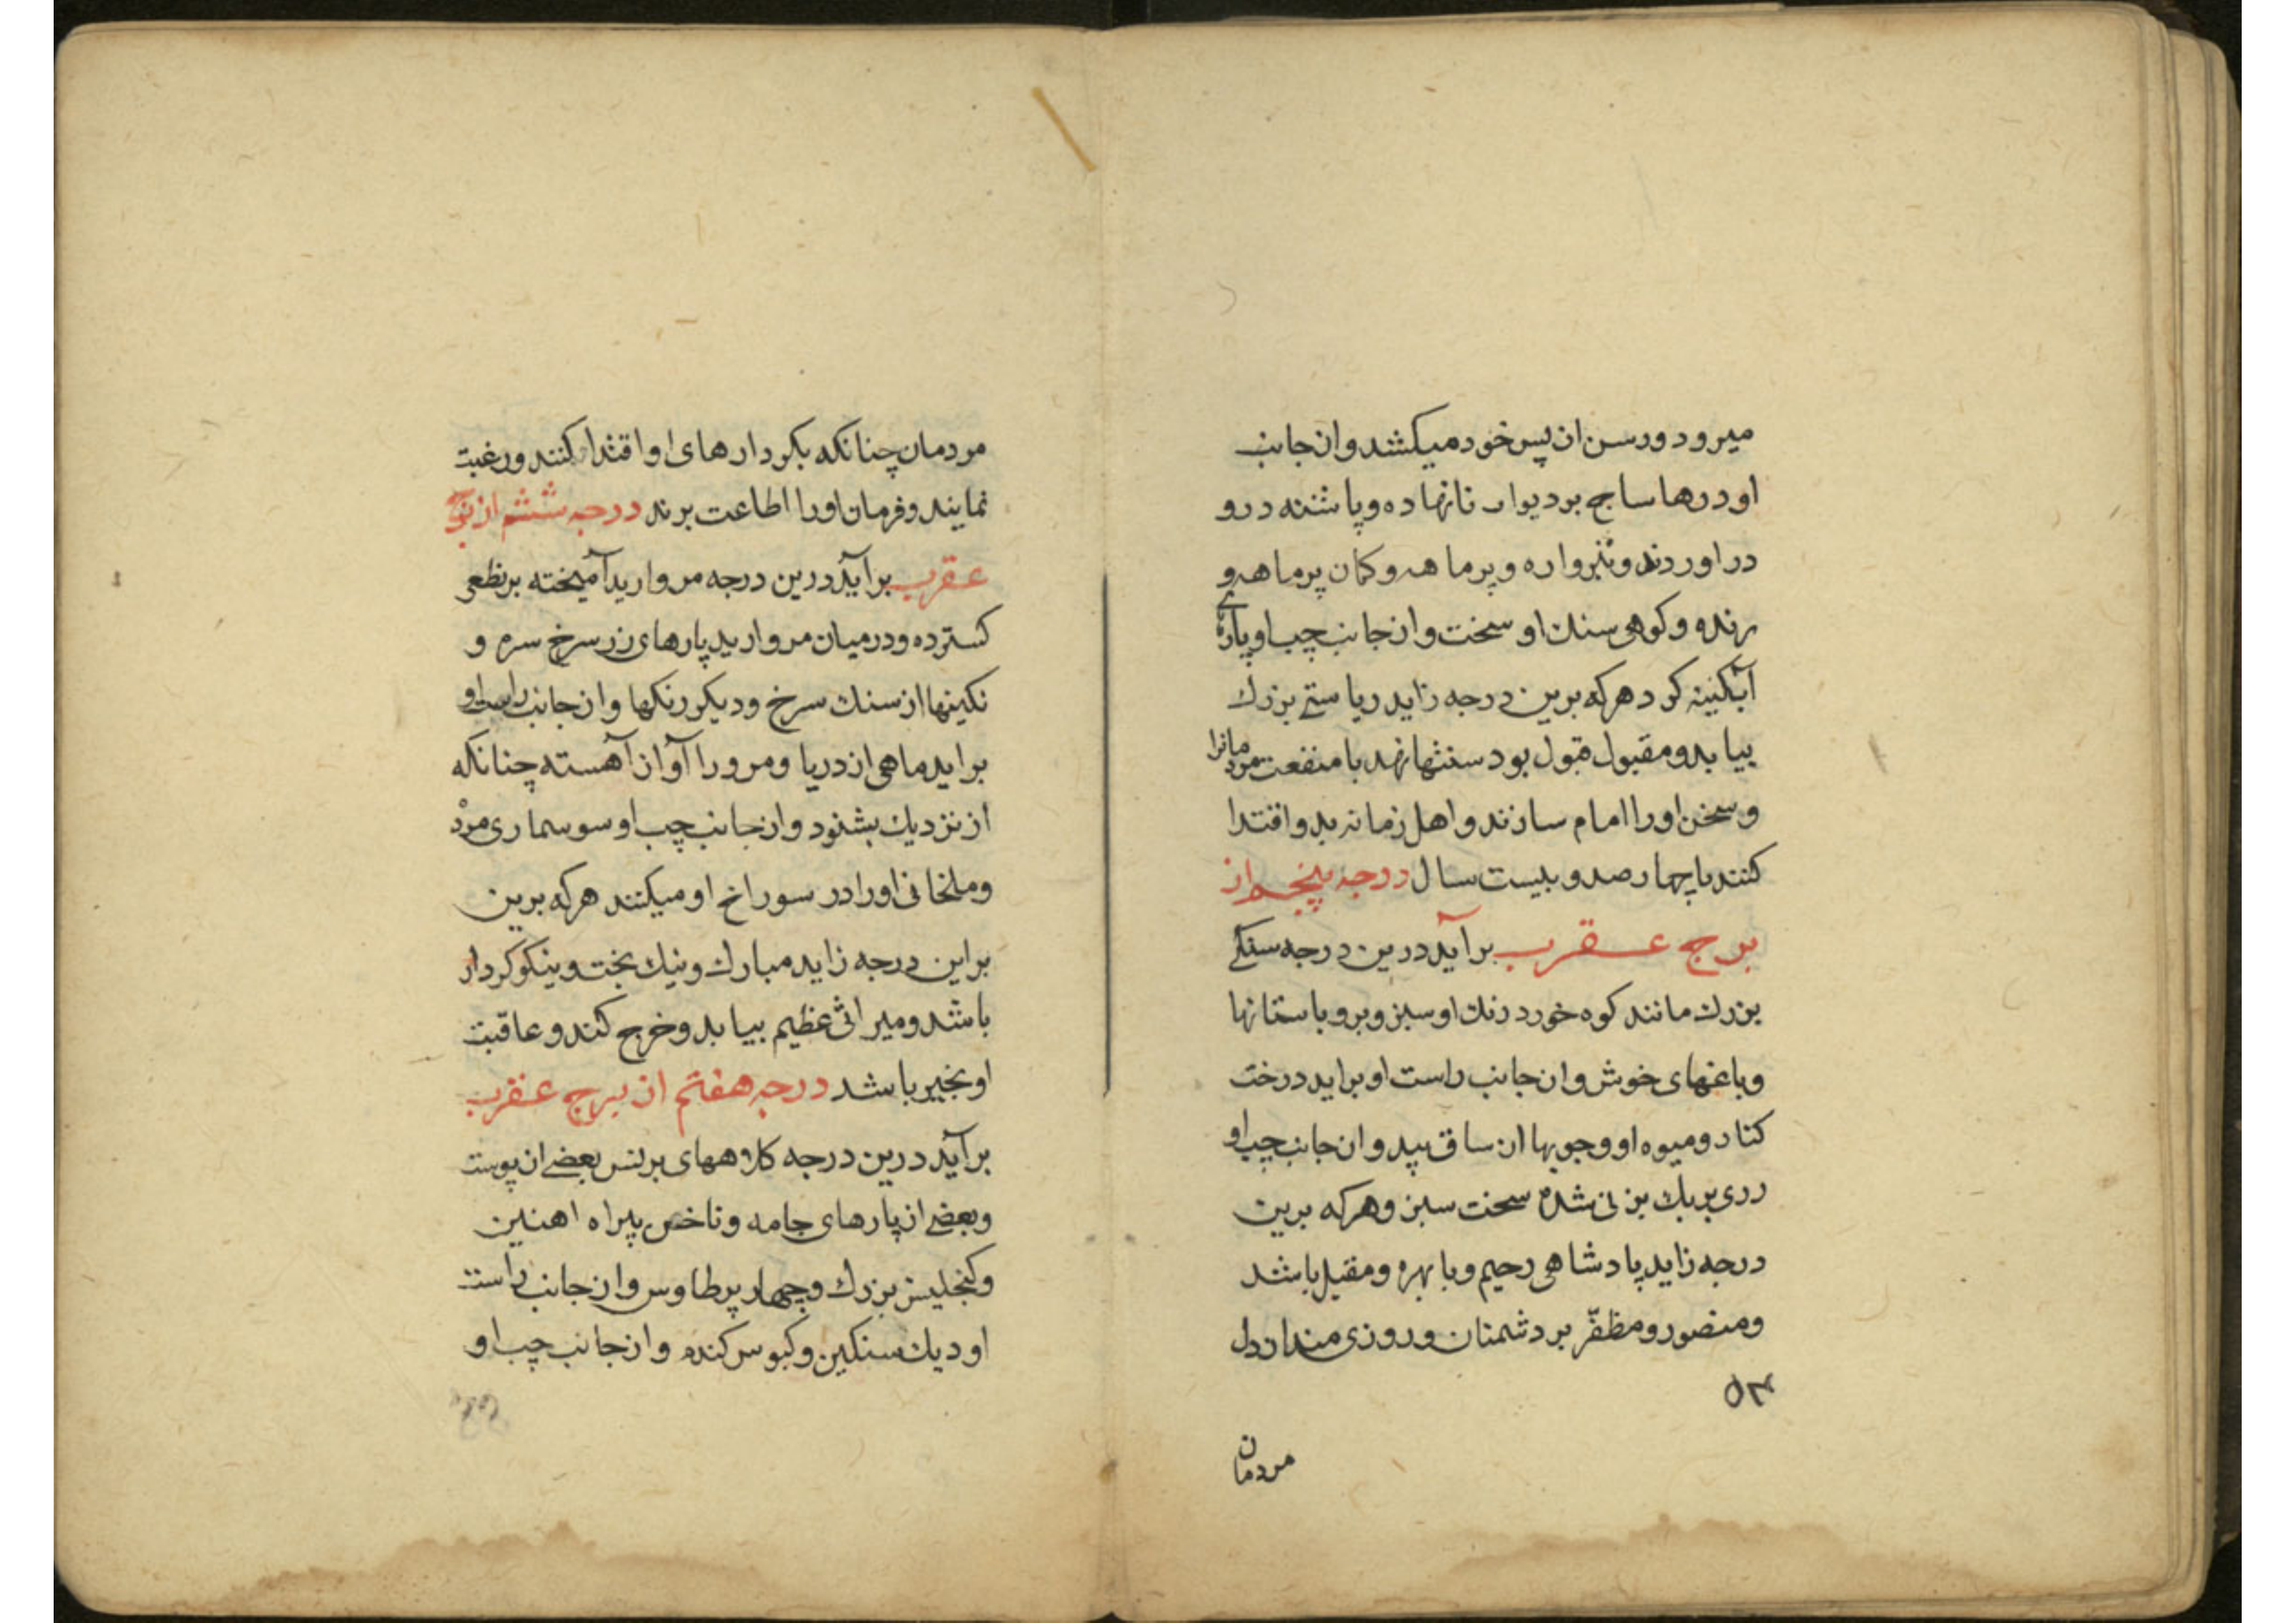 میرود ورسن از پس خود میکشد وازجانب
او درها ساج بر دیوار نانهاده و پاشنه درو
در اوردند و نیزواره و پرماهه و کمان پرماهه و
رنده و کوهی سنك او سخت وازجانب چپ او پارۀ
آبگینه کرد هرکه برین درجه زاید ریاستی بزرك
بیابد و مقبول قبول بود سنتها نهد با منفعت مردمانرا
و سخن اورا امام سازند و اهل زمانه بدو اقتدا
کنند تا چهارصد و بیست سال درجه پنجم از
برج عقرب برآید درین درجه سنکی
بزرك مانند کوه خورد رنك او سبز و برو باستانها
و باغهای خوش وازجانب راست او براید درخت
کنار و میوه او وجوبها از ساق بپد وازجانب چپ او
رری بر یك بز نی شده سخت سبز و هرکه برین
درجه زاید پادشاهی رحیم و با بهره و مقبل باشد
و منصور و مظفّر بر دشمنان و روزی مند از دل
۵۳
مردمان
مردمان چنانکه بکردارهای او اقتدا کنند و رغبت
نمایند و فرمان اورا اطاعت برند درجه ششم از برج
عقرب برآید درین درجه مروارید آمیخته بر نطعی
کسترده و درمیان مروارید پارهای زر سرخ سره و
نکینها از سنك سرخ و دیکر رنکها وازجانب راست او
براید ماهی از دریا و مرورا آواز آهسته چنانکه
از نزدیك بشنود وازجانب چپ او سوسماری مرد
و ملخانی اورا در سوراخ او میکنند هرکه برین
براین درجه زاید مبارك و نیك بخت و نیکو کردار
باشد و میراثی عظیم بیابد و خرج کند و عاقبت
او بخیر باشد درجه هفتم از برج عقرب
برآید درین درجه کلاههای برنس بعضی از پوست
و بعضی از پارهای جامه و ناخن پیراه اهنین
و کنجلیس بزرك و چهار پر طاوس وازجانب راست
او دیك سنکین و کبوس کنده وازجانب چپ او